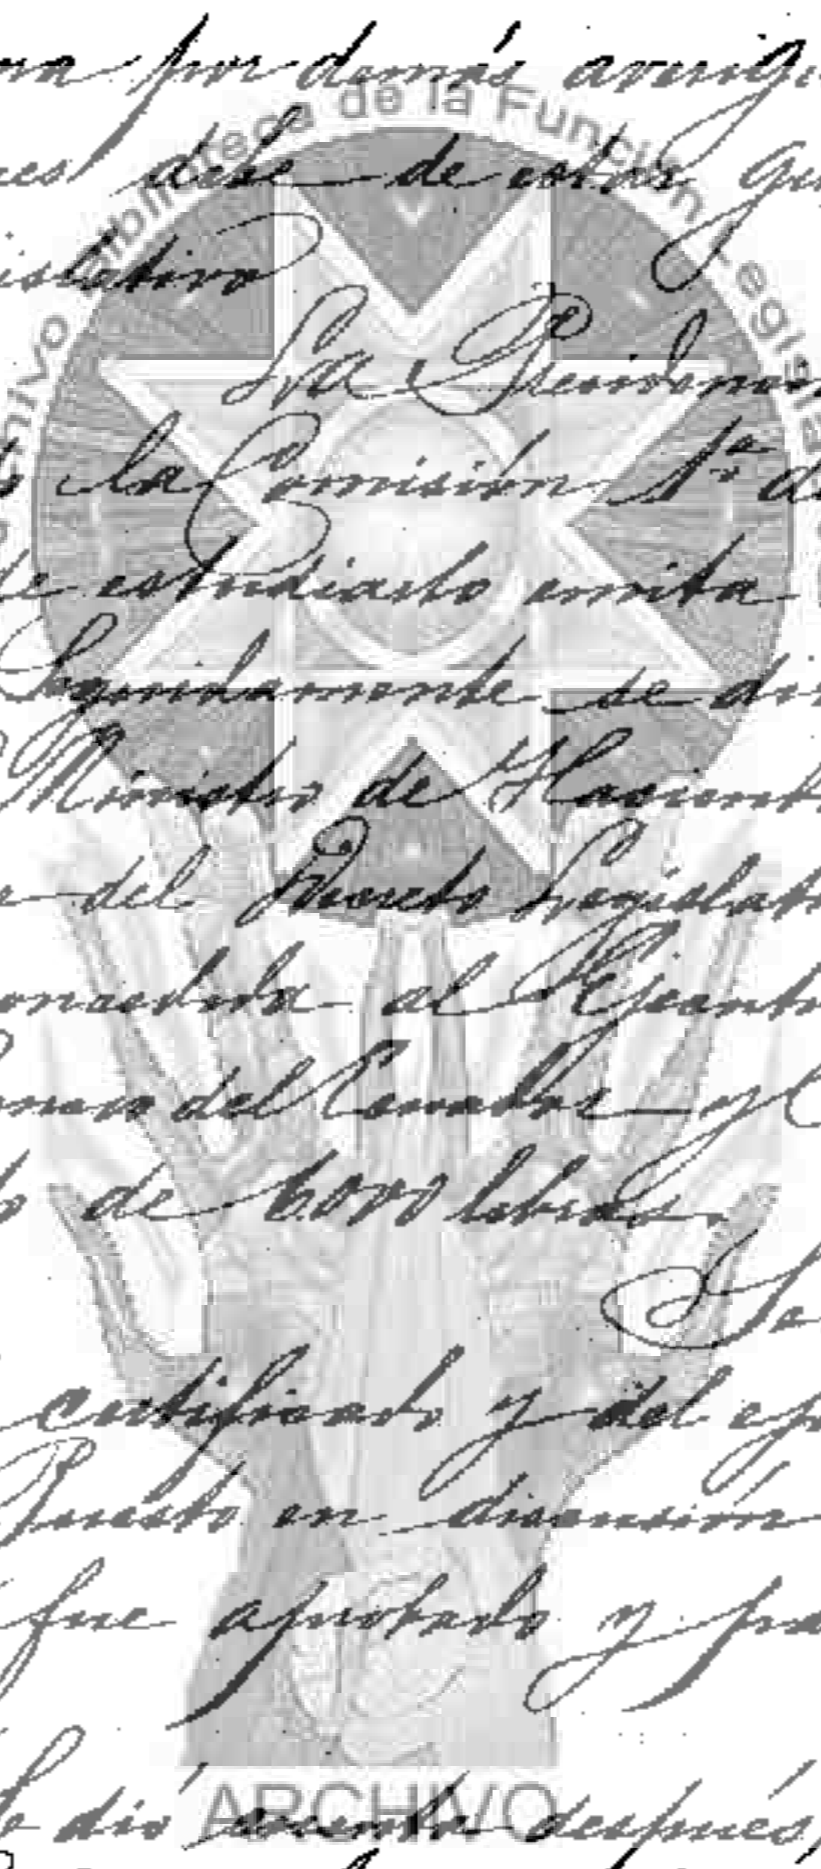 por demás averigu
debe de estar
islativo
La Presidencia
la Comisión 1ª d
de estudiarlo emita
Seguidamente se di
Ministro de Hacienda
del Decreto Legislat
concedida al Ejecuti
del Ecuador y
de 6000 libras.
Se
certificado y del
Puesto en discusión
fue aprobado y
dió cuenta después
Archivo Biblioteca de la Función Legisla
ARCHIVO